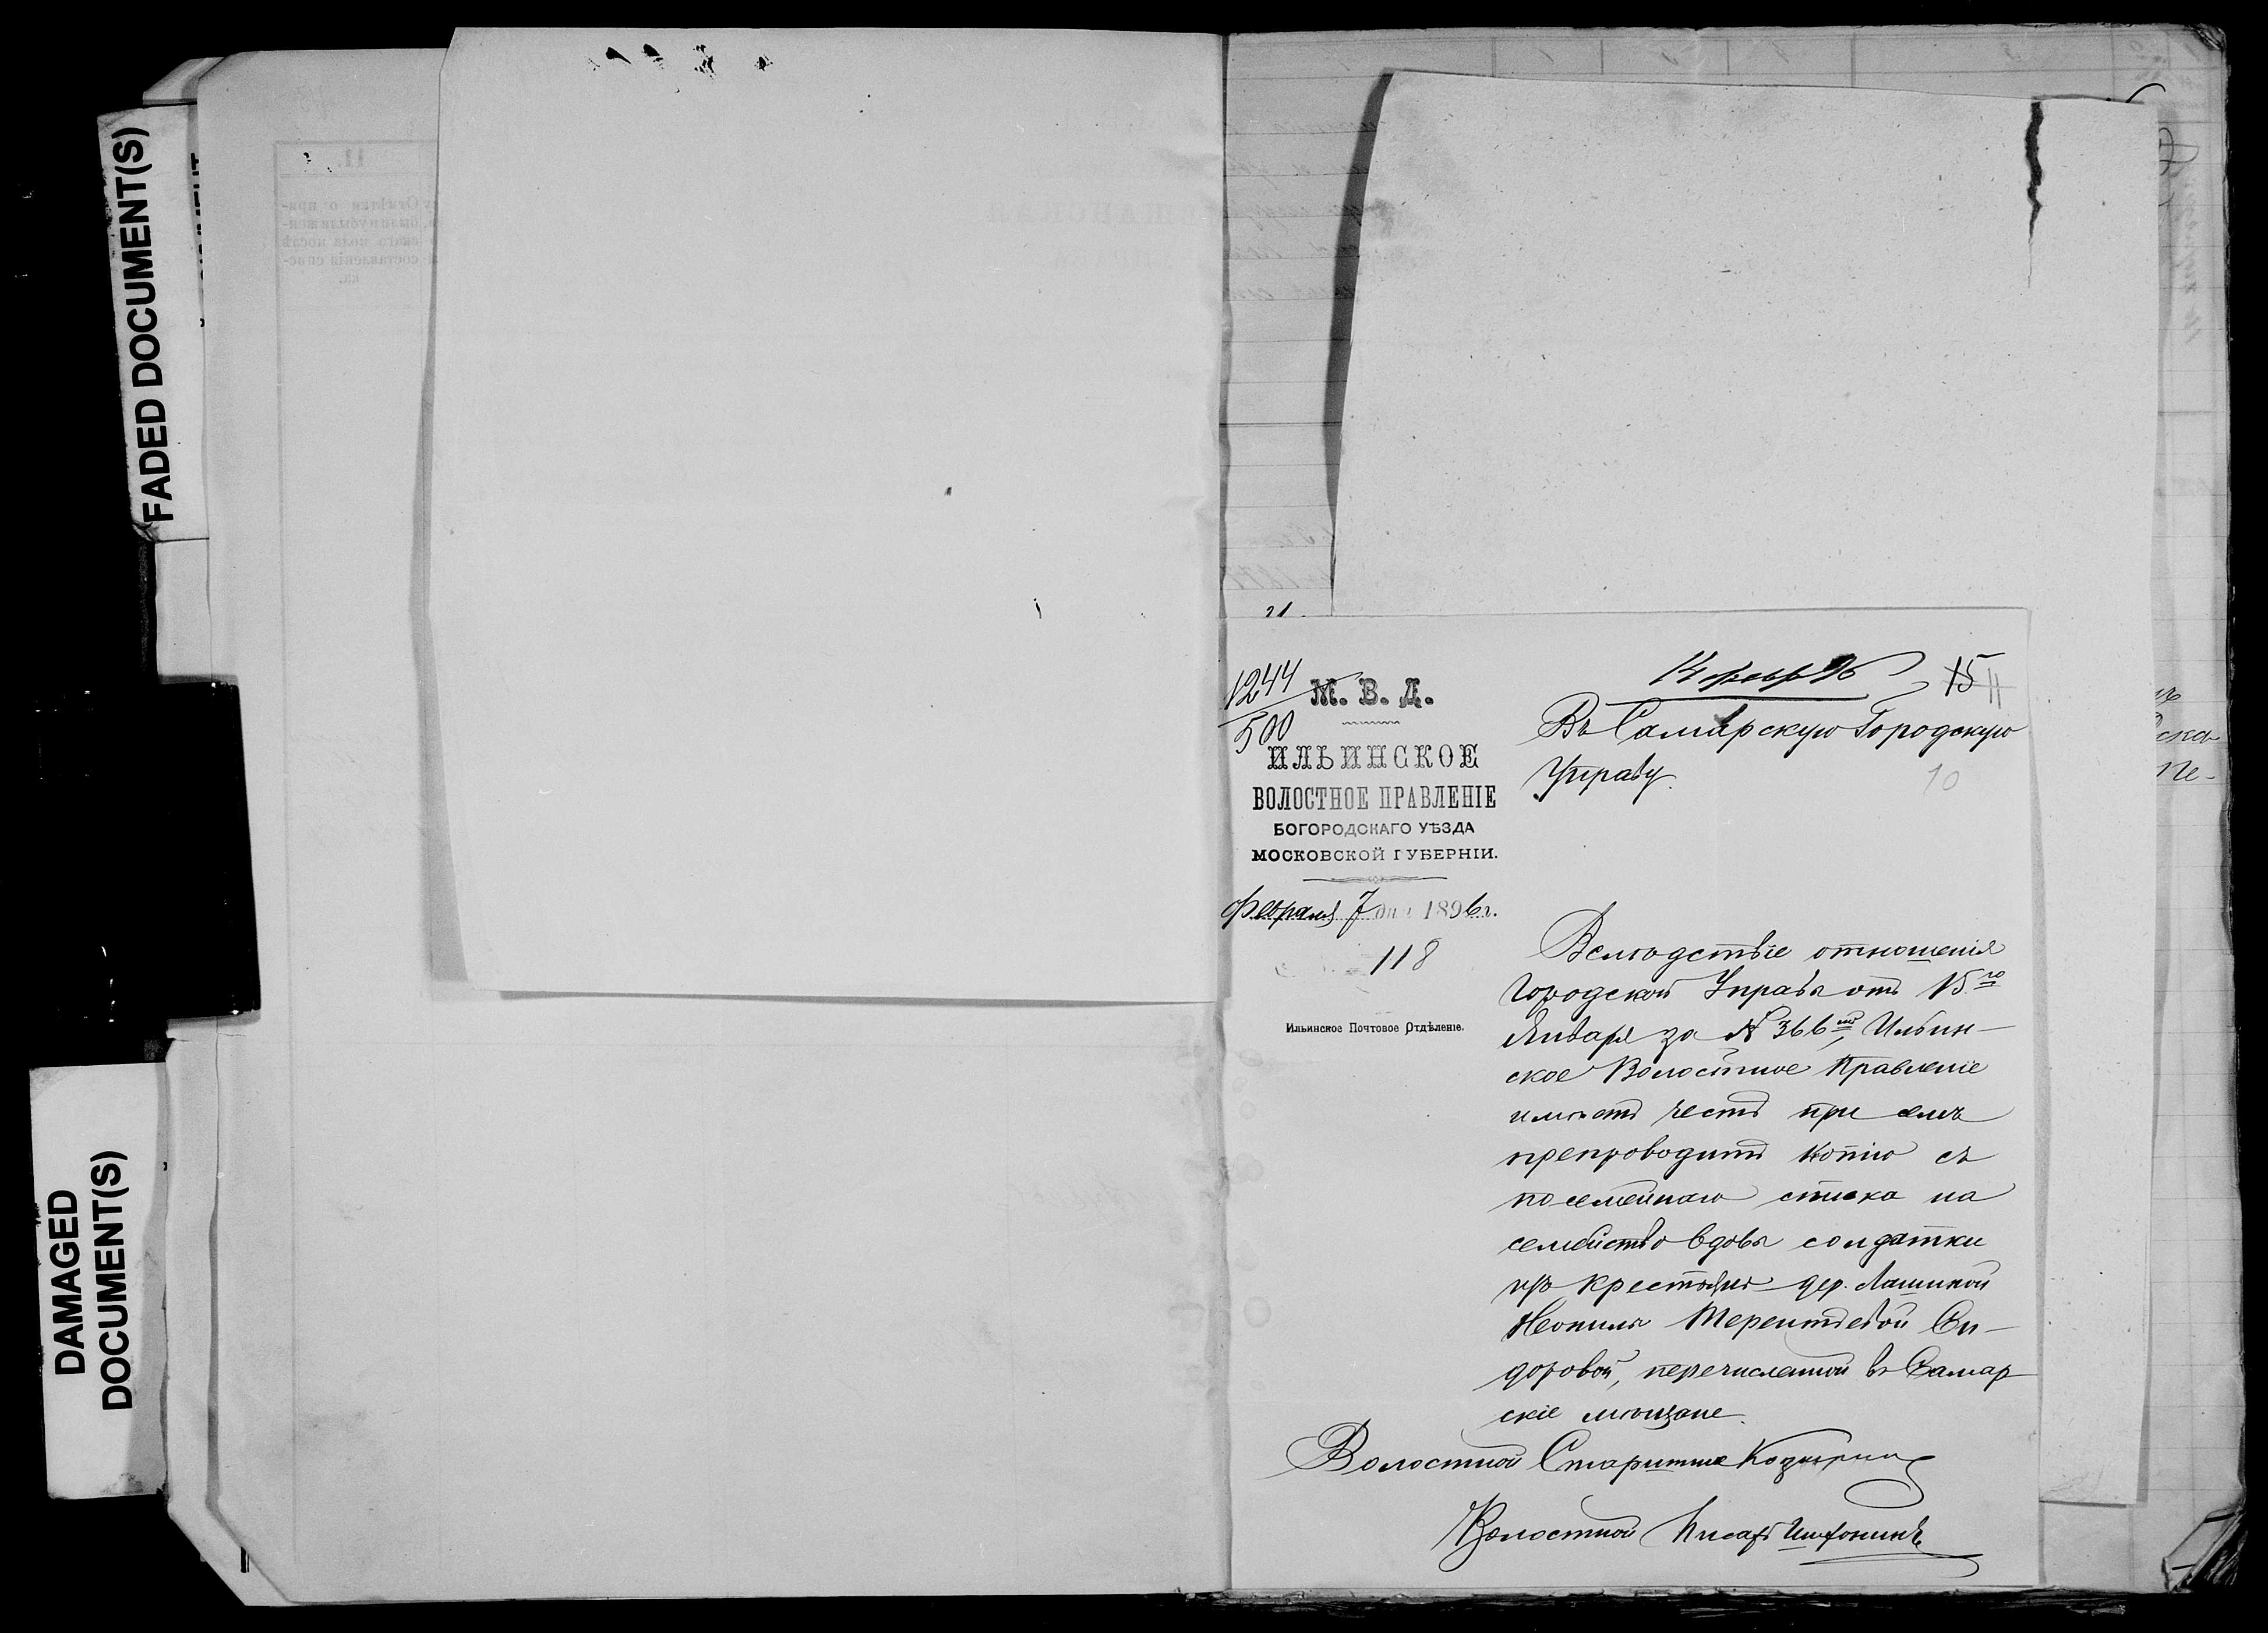 FADED DOCUMENT(S)
DAMAGED
DOCUMENT(S)
11.
21.
1244
500
М. В. Д.
ИЛЬИНСКОЕ
ВОЛОСТНОЕ ПРАВЛЕНІЕ
БОГОРОДСКАГО УѢЗДА
МОСКОВСКОЙ ГУБЕРНІИ.
Февраля 7 дня 1896 г.
118
Ильинское Почтовое Отдѣленіе.
14 февр 96
15
11
Въ Самарскую Городскую
Управу.
10
Вслѣдствіе отношенія
Городской Управы отъ 15го
Января за № 366мъ, Ильин-
ское Волостное Правленіе
имѣетъ честь при семъ
препроводить копію съ
посемейнаго списка на
семейство вдовы солдатки
изъ крестьянъ дер.
Неонилы Терентьевой Си-
доровой, перечисленной въ Самар
скіе мѣщане.
Волостной Старшина
Волостной Писарь